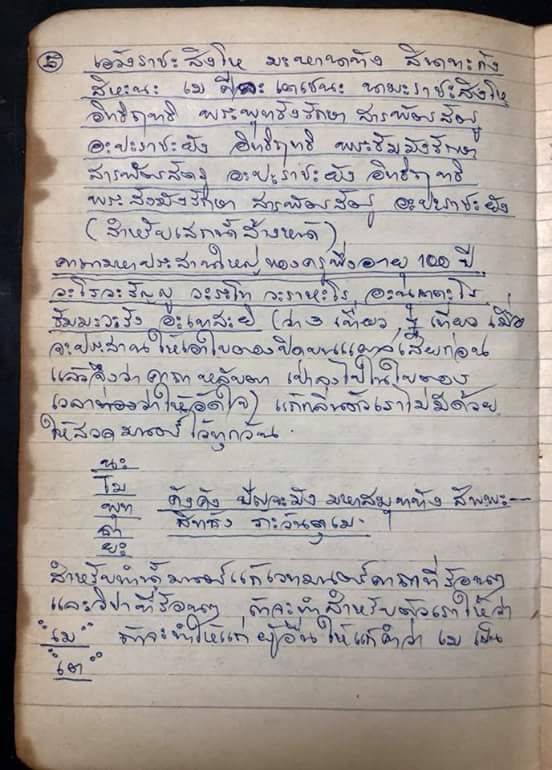 ๕ เอวังราชะสิงโห มะหานาทัง สีนาทะกัง
สีหะนะ เม สีละ เตเชนะ นามะราชะสิงโห
อิทธิฤทธิ พระพุทธังรักษา สารพัดศัตรู
อะปะราชะยัง อิทธิฤทธิ พระธัมมังรักษา
สารพัดศัตรู อะปะราชะยัง อิทธิฤทธิ
พระสังฆังรักษา สารพัดศัตรู อะปะราชะยัง
(สำหรับเสกน้ำล้างหน้า)
คาถามหาประสานใหญ่ ของครูพึ่งอายุ 100 ปี
วะโรวะรัญญู วะระโท วะราหะโร อะนุตตะโร
ธัมมะวะรัง อะเทสะยิ (ว่า ๓ เที่ยว, เที่ยว เมื่อ
จะประสานให้เอาใบตองปิดบนแผลเสียก่อน
แล้วจึงว่าคาถา หลับตา เป่าลงไปในใบตอง
เวลาท่องว่าให้อัดใจ) แก้กลิ่นตัวเราไม่มีด้วย
ให้สวดมนต์ไว้ทุกวัน
นะ
โม
พุท ตังตัง ปัญจะมัง มหาสมุททัง สัพพะ---
ธา สิทธัง ภะวันตุเม
ยะ
สำหรับทำน้ำมนต์แก้เวทมนตร์คาถาที่ร้อนๆ
และวิชาที่ร้อนๆ ถ้าจะทำสำหรับตัวเราให้ว่า
"เม" ถ้าจะทำให้แก่ผู้อื่น ให้แก้คำว่า เม เป็น
"เต"